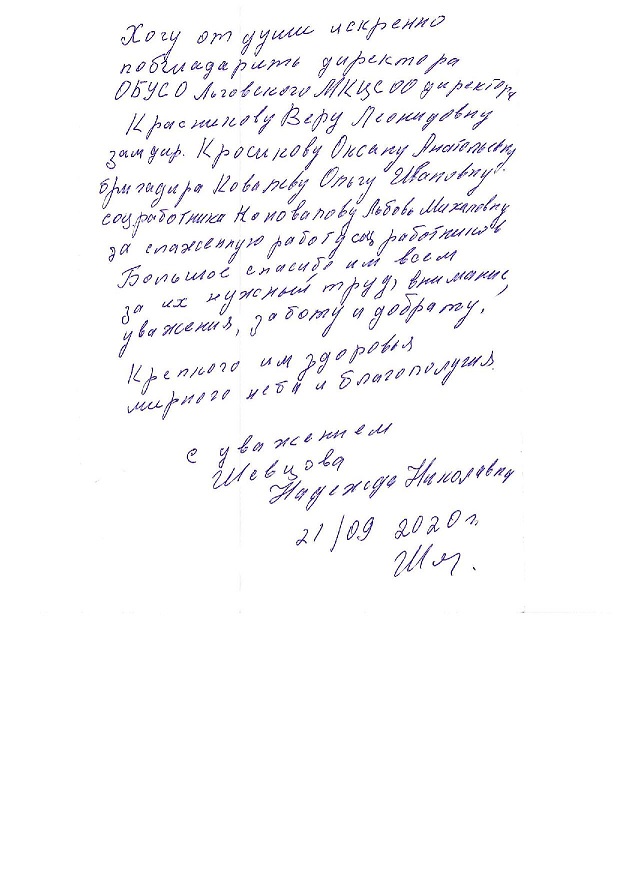 Хочу от души искренно
поблгадарить директора
ОБУСО Льговского МКЦСОО директора
Красникову Веру Леонидовну
зам дир. Кросикову Оксану Анатольевну
бригадира Ковалеву Ольгу Ивановну
соц работника Коновалову Любовь Михаловну
за слаженную работу соц работников
Большое спасибо им всем
за их нужный труд, внимание,
уважения, заботу и добрату.
Крепного им здоровья
мирного неба и благополучия.
с уважением
Шевцова
Надежда Николавна
21/09 2020 г.